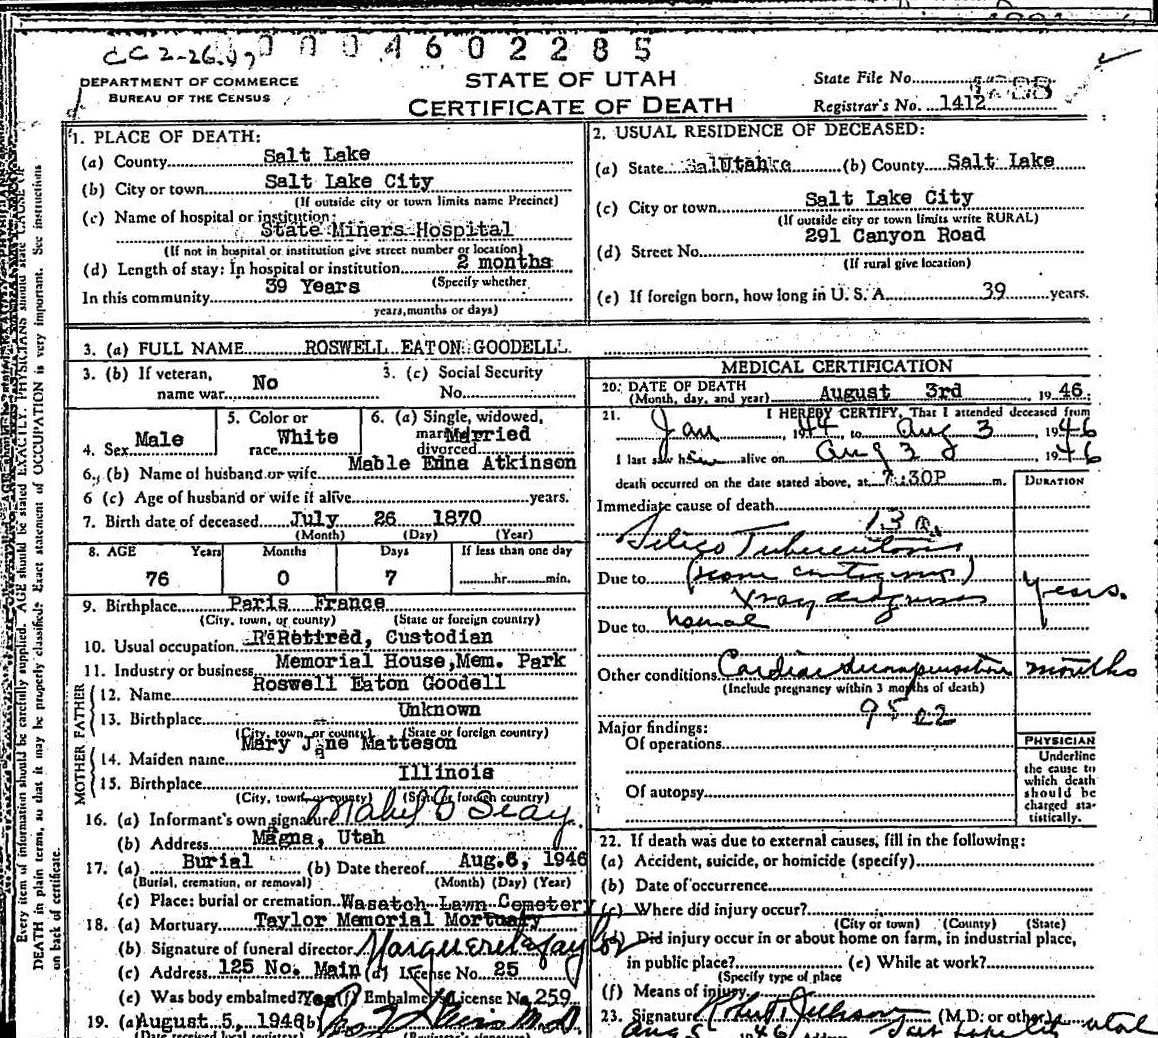 CC 2-26.
0 0 0 4 6 0 2 2 8 5
DEPARTMENT OF COMMERCE
BUREAU OF THE CENSUS
STATE OF UTAH
CERTIFICATE OF DEATH
State File No.
Registrar's No. 1412
Every item of information should be carefully supplied. AGE should be stated EXACTLY. PHYSICIANS should state CAUSE OF
DEATH in plain terms, so that it may be properly classified. Exact statement of OCCUPATION is very important. See instructions
on back of certificate.
1. PLACE OF DEATH:
(a) County Salt Lake
(b) City or town Salt Lake City
(If outside city or town limits name Precinct)
(c) Name of hospital or institution:
State Miners Hospital
(If not in hospital or institution give street number or location)
(d) Length of stay: In hospital or institution 2 months
(Specify whether
In this community 39 Years
years, months or days)
2. USUAL RESIDENCE OF DECEASED:
(a) State Utah (b) County Salt Lake
(c) City or town Salt Lake City
(If outside city or town limits write RURAL)
(d) Street No. 291 Canyon Road
(If rural give location)
(e) If foreign born, how long in U. S. A. 39 years.
3. (a) FULL NAME ROSWELL EATON GOODELL
3. (b) If veteran, name war No
3. (c) Social Security No.
4. Sex Male
5. Color or race White
6. (a) Single, widowed, married divorced Married
6. (b) Name of husband or wife Mable Edna Atkinson
6 (c) Age of husband or wife if alive years.
7. Birth date of deceased July 26 1870
(Month) (Day) (Year)
8. AGE Years Months Days If less than one day
76 0 7 hr. min.
9. Birthplace Paris France
(City, town, or county) (State or foreign country)
10. Usual occupation Retired, Custodian
11. Industry or business Memorial House, Mem. Park
FATHER
12. Name Roswell Eaton Goodell
13. Birthplace Unknown
(City, town, or county) (State or foreign country)
MOTHER
14. Maiden name Mary Jane Matteson
15. Birthplace Illinois
(City, town, or county) (State or foreign country)
16. (a) Informant's own signature Mabel G Seay
(b) Address Magna, Utah
17. (a) Burial (b) Date thereof Aug. 6, 1946
(Burial, cremation, or removal) (Month) (Day) (Year)
(c) Place: burial or cremation Wasatch Lawn Cemetery
18. (a) Mortuary Taylor Memorial Mortuary
(b) Signature of funeral director Marguerite Taylor
(c) Address 125 No. Main (d) License No. 25
(e) Was body embalmed? Yes (f) Embalmer's License No. 259
19. (a) August 5, 1946 (b)
(Date received local registrar) (Registrar's signature)
MEDICAL CERTIFICATION
20. DATE OF DEATH
(Month, day, and year) August 3rd 1946.
21. I HEREBY CERTIFY, That I attended deceased from
Jan, 1944, to Aug 3 1946
I last saw him alive on Aug 3 1946
death occurred on the date stated above, at 7:30P m.
DURATION
Immediate cause of death
13 a
Silico Tuberculosis
Due to (non contagious) years.
Xray diagnosis
Due to
Other conditions Cardiac decompensation months
(Include pregnancy within 3 months of death)
Major findings:
Of operations
Of autopsy
PHYSICIAN
Underline
the cause to
which death
should be
charged sta-
tistically.
22. If death was due to external causes, fill in the following:
(a) Accident, suicide, or homicide (specify)
(b) Date of occurrence
(c) Where did injury occur?
(City or town) (County) (State)
(d) Did injury occur in or about home on farm, in industrial place,
in public place? (e) While at work?
(Specify type of place
(f) Means of injury
23. Signature (M.D. or other)
Aug 5 1946 Address Salt Lake City Utah